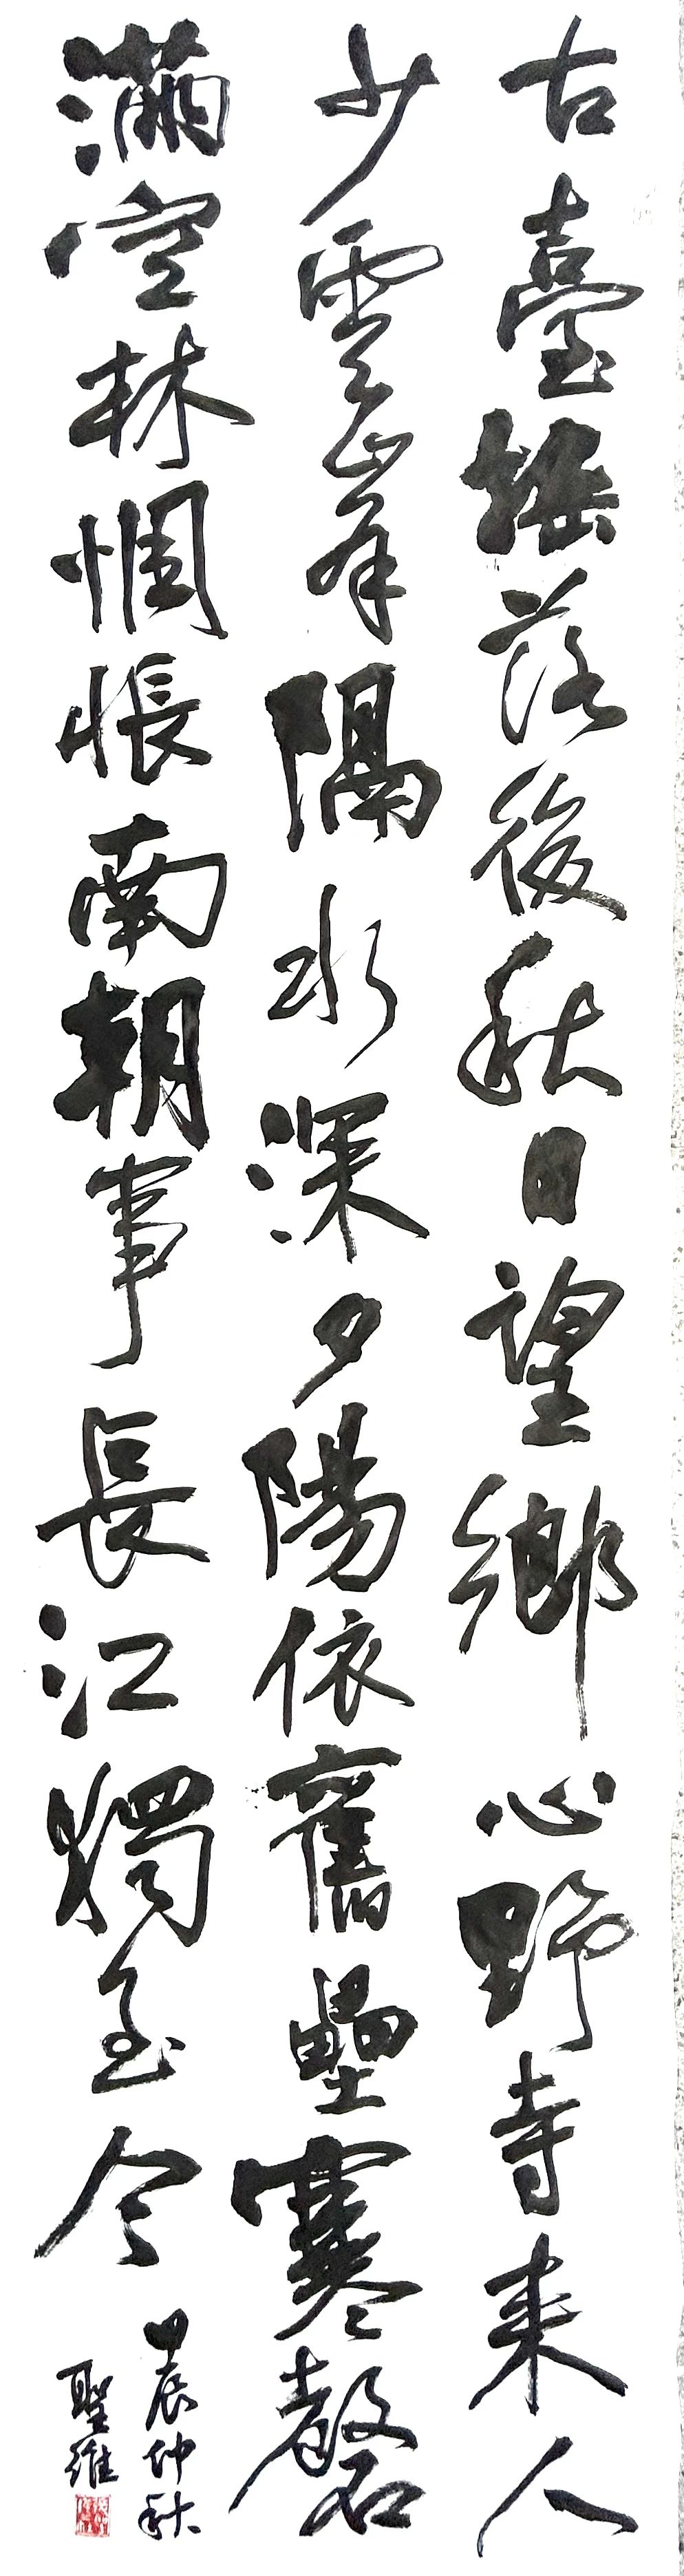 古臺搖落後秋日望鄉心野寺来人
少雲峯隔水深夕陽依舊壘寒磬
滿空林惆悵南朝事長江獨至今
甲辰仲秋
聖維